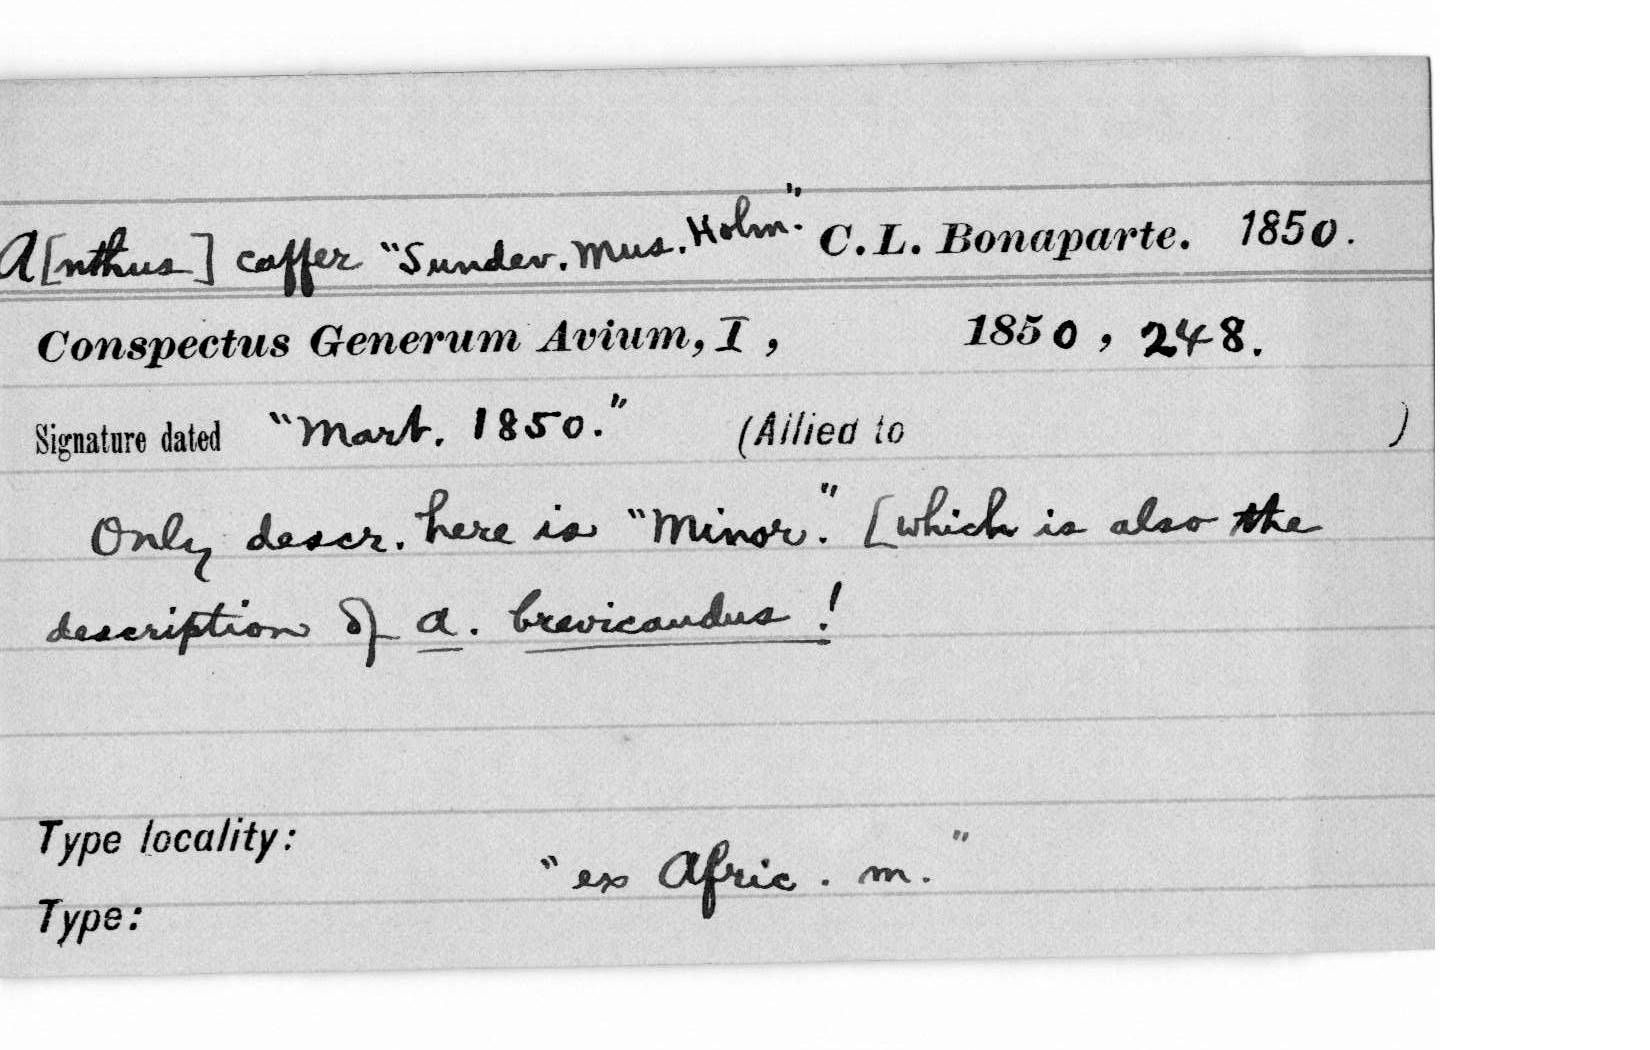 A[nthus] caffer "Sundev. Mus. Holm." C.L. Bonaparte. 1850.
Conspectus Generum Avium, I, 1850, 248.
Signature dated "Mart. 1850." (Allied to )
Only descr. here is "Minor." [which is also the
description of A. brevicaudus!
Type locality:
"ex Afric. m."
Type: